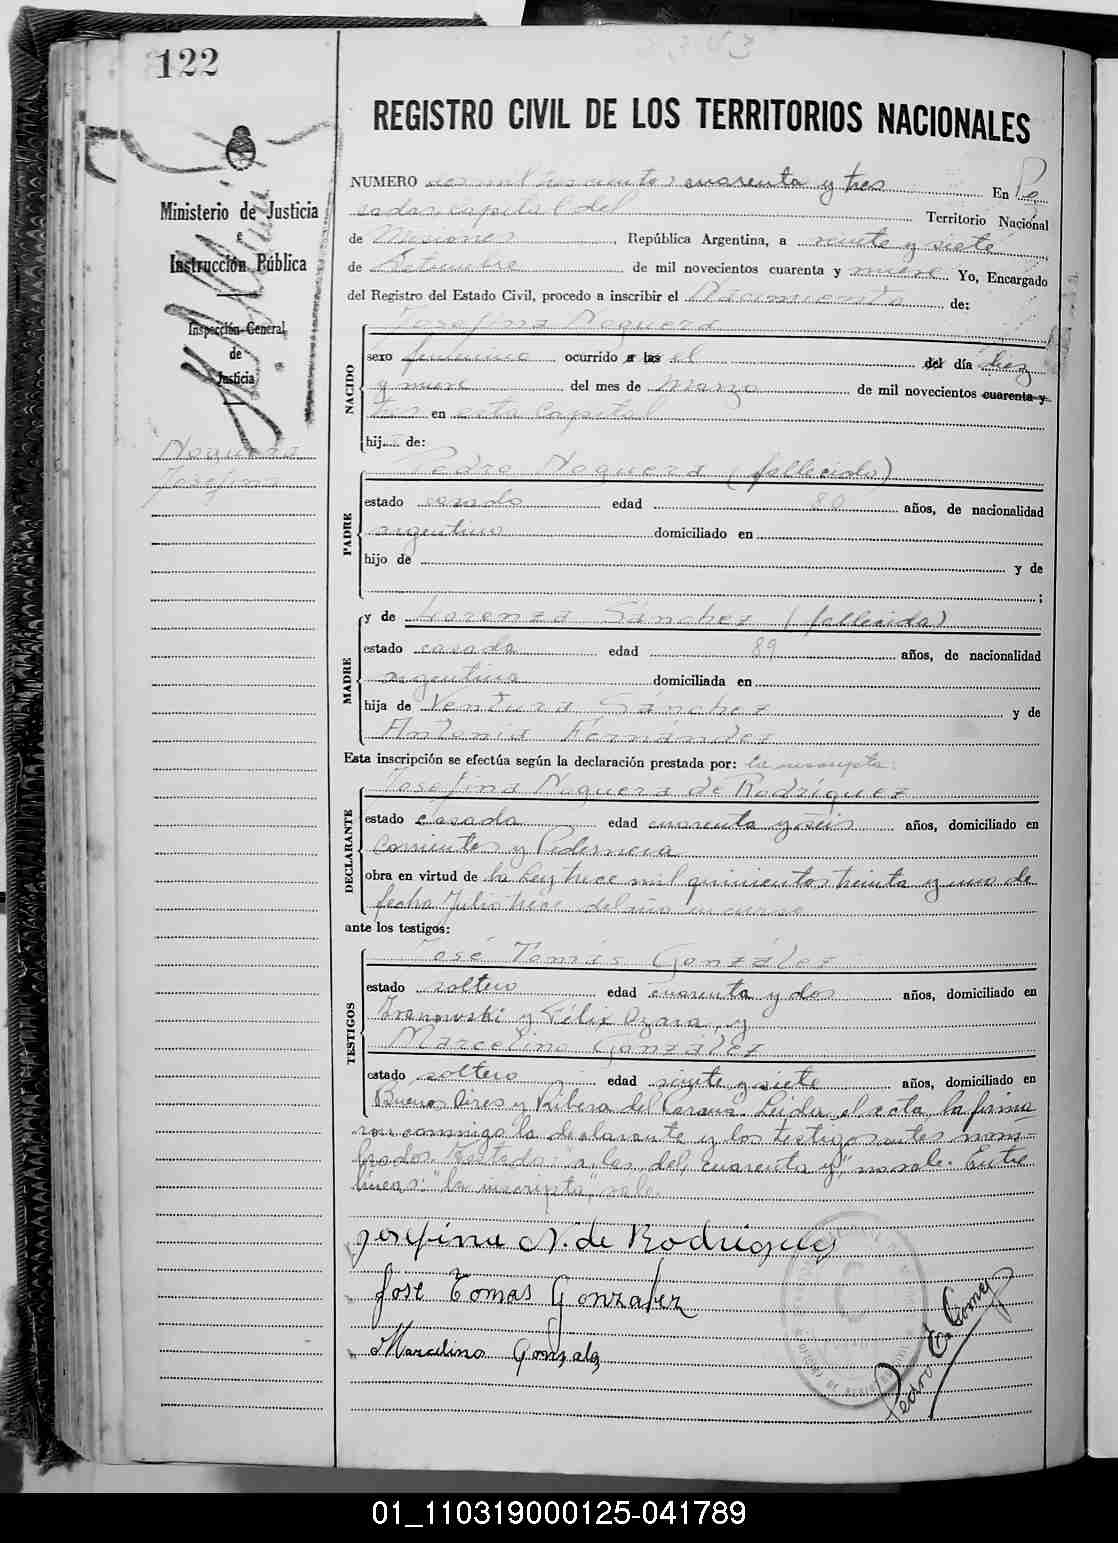 122
REGISTRO CIVIL DE LOS TERRITORIOS NACIONALES
Ministerio de Justicia
e
Instrucción Pública
Inspección General
de
Justicia
Noguera
Josefina
NUMERO dos mil trescientos cuarenta y tres En Po
sadas, capital del Territorio Nacional
de Misiones, República Argentina, a veinte y siete
de Setiembre de mil novecientos cuarenta y nueve Yo, Encargado
del Registro del Estado Civil, procedo a inscribir el Nacimiento de:
NACIDO
Josefina Noguera
sexo femenino ocurrido a las el del día diez
y nueve del mes de Marzo de mil novecientos cuarenta y
tres en esta Capital
hij.... de:
PADRE
Pedro Noguera (fallecido)
estado casado edad 80 años, de nacionalidad
argentino domiciliado en
hijo de y de
;
MADRE
y de Lorenza Sánchez (fallecida)
estado casada edad 89 años, de nacionalidad
argentina domiciliada en
hija de Ventura Sánchez y de
Antonia Fernández
Esta inscripción se efectúa según la declaración prestada por: la inscripta:
DECLARANTE
Josefina Noguera de Rodríguez
estado casada edad cuarenta y seis años, domiciliado en
Corrientes y Pedernera
obra en virtud de la Ley trece mil quinientos treinta y uno de
fecha Julio trece del año en curso
ante los testigos:
TESTIGOS
José Tomás González
estado soltero edad cuarenta y dos años, domiciliado en
y Félix Azara, y
Marcelino González
estado soltero edad veinte y siete años, domiciliado en
Buenos Aires y Ribera del Paraná. Leida el acta, la firma
ron conmigo la declarante y los testigos antes nom-
brados. Testado: "a las, del, cuarenta y," no vale. Entre
líneas: "la inscripta", vale.
Josefina N. de Rodriguez
Jose Tomas Gonzalez
Marcelino Gonzalez
Pedro E. Gomez
01_110319000125-041789